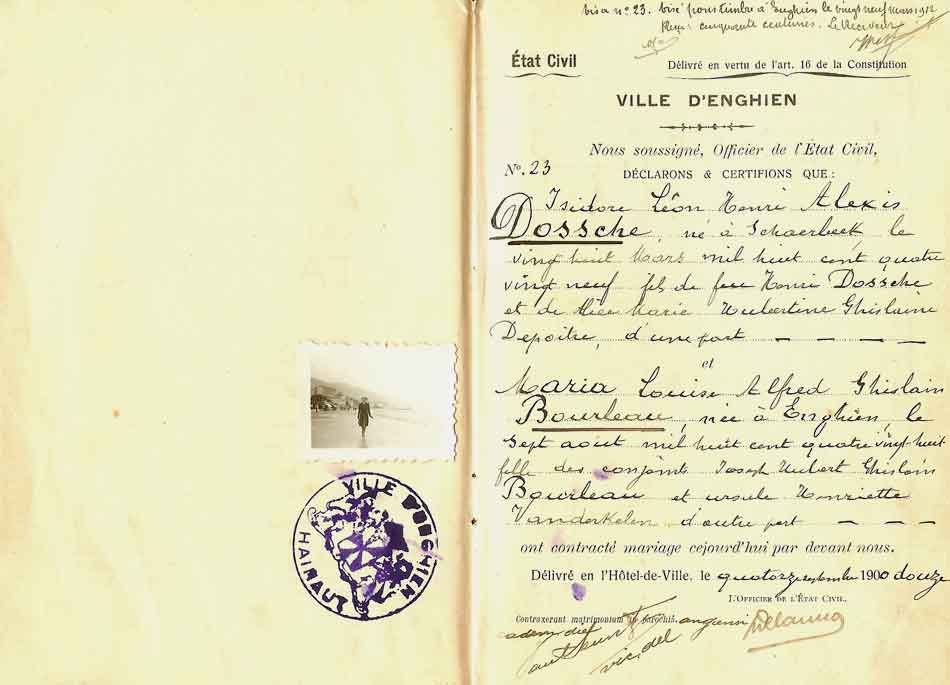 visa n° 23. visé pour timbre à Enghien le vingt neuf mars 1912
Reçu : cinquante centimes. Le Receveur
État Civil
Délivré en vertu de l'art. 16 de la Constitution
VILLE D'ENGHIEN
Nous soussigné, Officier de l'État Civil,
N°. 23
DÉCLARONS & CERTIFIONS QUE :
Isidore Léon Henri Alexis
Dossche, né à Schaerbeek, le
vingt huit Mars mil huit cent quatre
vingt neuf fils de feu Henri Dossche
et de Marie Hubertine Ghislaine
Depoitre, d'une part — — — —
et
Maria Louise Alfred Ghislain
Bourleau, née à Enghien, le
sept août mil huit cent quatre vingt-huit
fille des conjoints Joseph Hubert Ghislain
Bourleau et Ursule Henriette
Vanderkelen d'autre part — — —
ont contracté mariage cejourd'hui par devant nous.
Délivré en l'Hôtel-de-Ville, le quatorze 1900 douze
L'OFFICIER DE L'ÉTAT CIVIL.
Contraxerunt matrimonium in parochia
eadem die
vic. del
Delannoy
VILLE D'ENGHIEN
HAINAUT